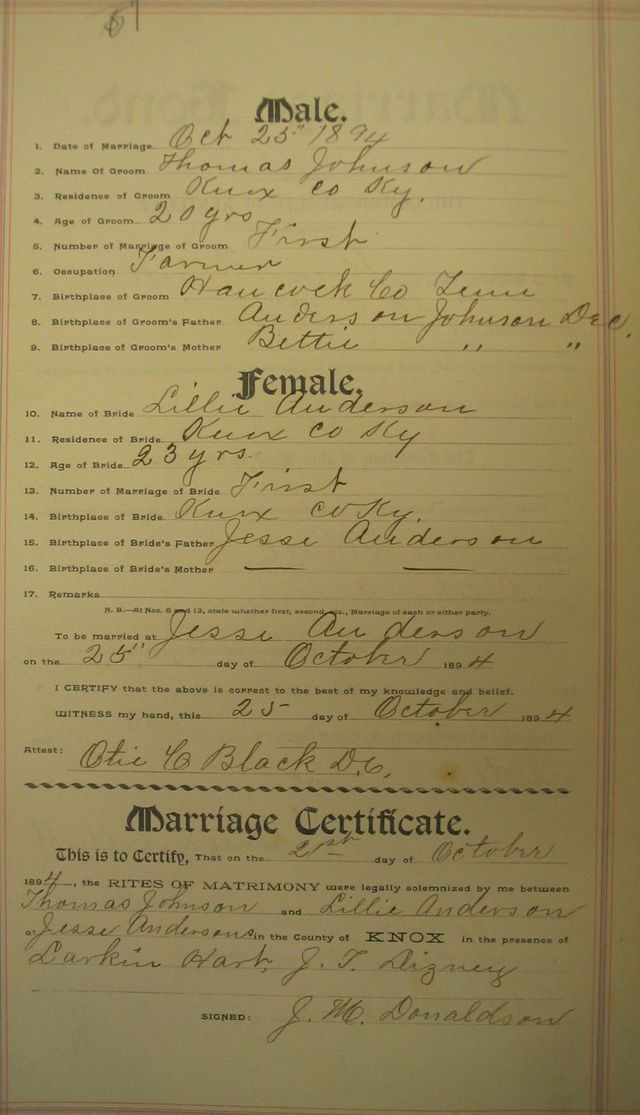 Male.
1. Date of Marriage Oct 25" 1894
2. Name Of Groom Thomas Johnson
3. Residence of Groom Knox Co Ky.
4. Age of Groom 20 yrs
5. Number of Marriage of Groom First
6. Occupation Farmer
7. Birthplace of Groom Hancock Co Tenn
8. Birthplace of Groom's Father Anderson Johnson Dec.
9. Birthplace of Groom's Mother Bettie " "
Female.
10. Name of Bride Lillie Anderson
11. Residence of Bride Knox Co Ky
12. Age of Bride 23 yrs
13. Number of Marriage of Bride First
14. Birthplace of Bride Knox Co Ky.
15. Birthplace of Bride's Father Jesse Anderson
16. Birthplace of Bride's Mother — —
17. Remarks
N. B.—At Nos. 5 and 13, state whether first, second, etc., Marriage of each or either party.
To be married at Jesse Anderson
on the 25" day of October 1894
I CERTIFY that the above is correct to the best of my knowledge and belief.
WITNESS my hand, this 25 day of October 1894
Attest: Otie C Black D.C.
Marriage Certificate.
This is to Certify, That on the 2 day of October
1894, the RITES OF MATRIMONY were legally solemnized by me between
Thomas Johnson and Lillie Anderson
at Jesse Andersons in the County of KNOX in the presence of
Larkin Hart, J. T. Dizney
SIGNED: J. M. Donaldson